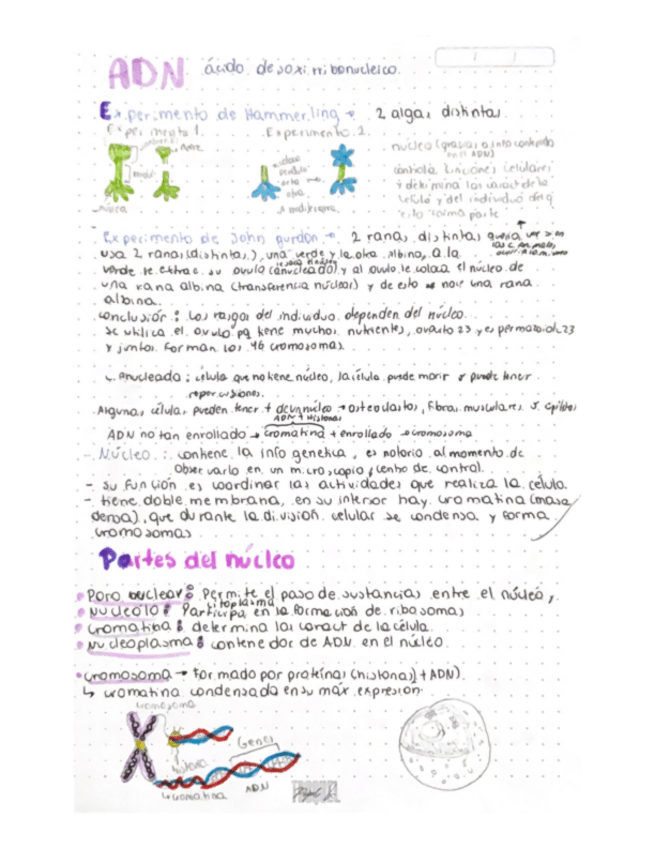 ADN ácido desoxirribonucleico.
Experimento de Hammerling → 2 algas distintas
Experimento 1. Experimento 2.
núcleo (gracias a info contenida
en el ADN)
controla funciones celulares
y determina las caract de la
célula y del individuo del q'
esta forma parte
Experimento de John gurdon → 2 ranas distintas quería ver si en
los c. animales
ocurría lo mismo
usa 2 ranas (distintas), una verde y la otra albina, a la
verde le extrae su óvulo (anucleado) y al ovulo le coloca el núcleo de
una rana albina (transferencia núclear) y de esto nace una rana
albina.
conclusión: Los rasgos del individuo dependen del núcleo.
se utiliza el ovulo pq tiene muchos nutrientes, ovulo 23 y espermatozoide 23
y juntos forman los 46 cromosomas.
↳ Anucleada: célula que no tiene núcleo, la célula puede morir o puede tener
repercusiones.
Algunas células pueden tener + de un núcleo → osteoclastos, fibras musculares
ADN + histonas
ADN no tan enrollado → cromatina + enrollado → cromosoma
- Núcleo: contiene la info genetica, es notorio al momento de
observarlo en un microscopio, centro de control.
- su función es coordinar las actividades que realiza la célula.
- tiene doble membrana, en su interior hay cromatina (masa
densa), que durante la división celular se condensa y forma
cromosomas
Partes del núcleo
• Poro nuclear: Permite el paso de sustancias entre el núcleo y
citoplasma
• Nucleolo: Participa en la formación de ribosomas
• Cromatina: determina las caract de la célula.
• Nucleoplasma: contenedor de ADN en el núcleo.
• cromosoma → formado por proteínas (histonas) + ADN).
↳ cromatina condensada en su máx expresión.
cromosoma
Genes
histona
ADN
↳ cromatina